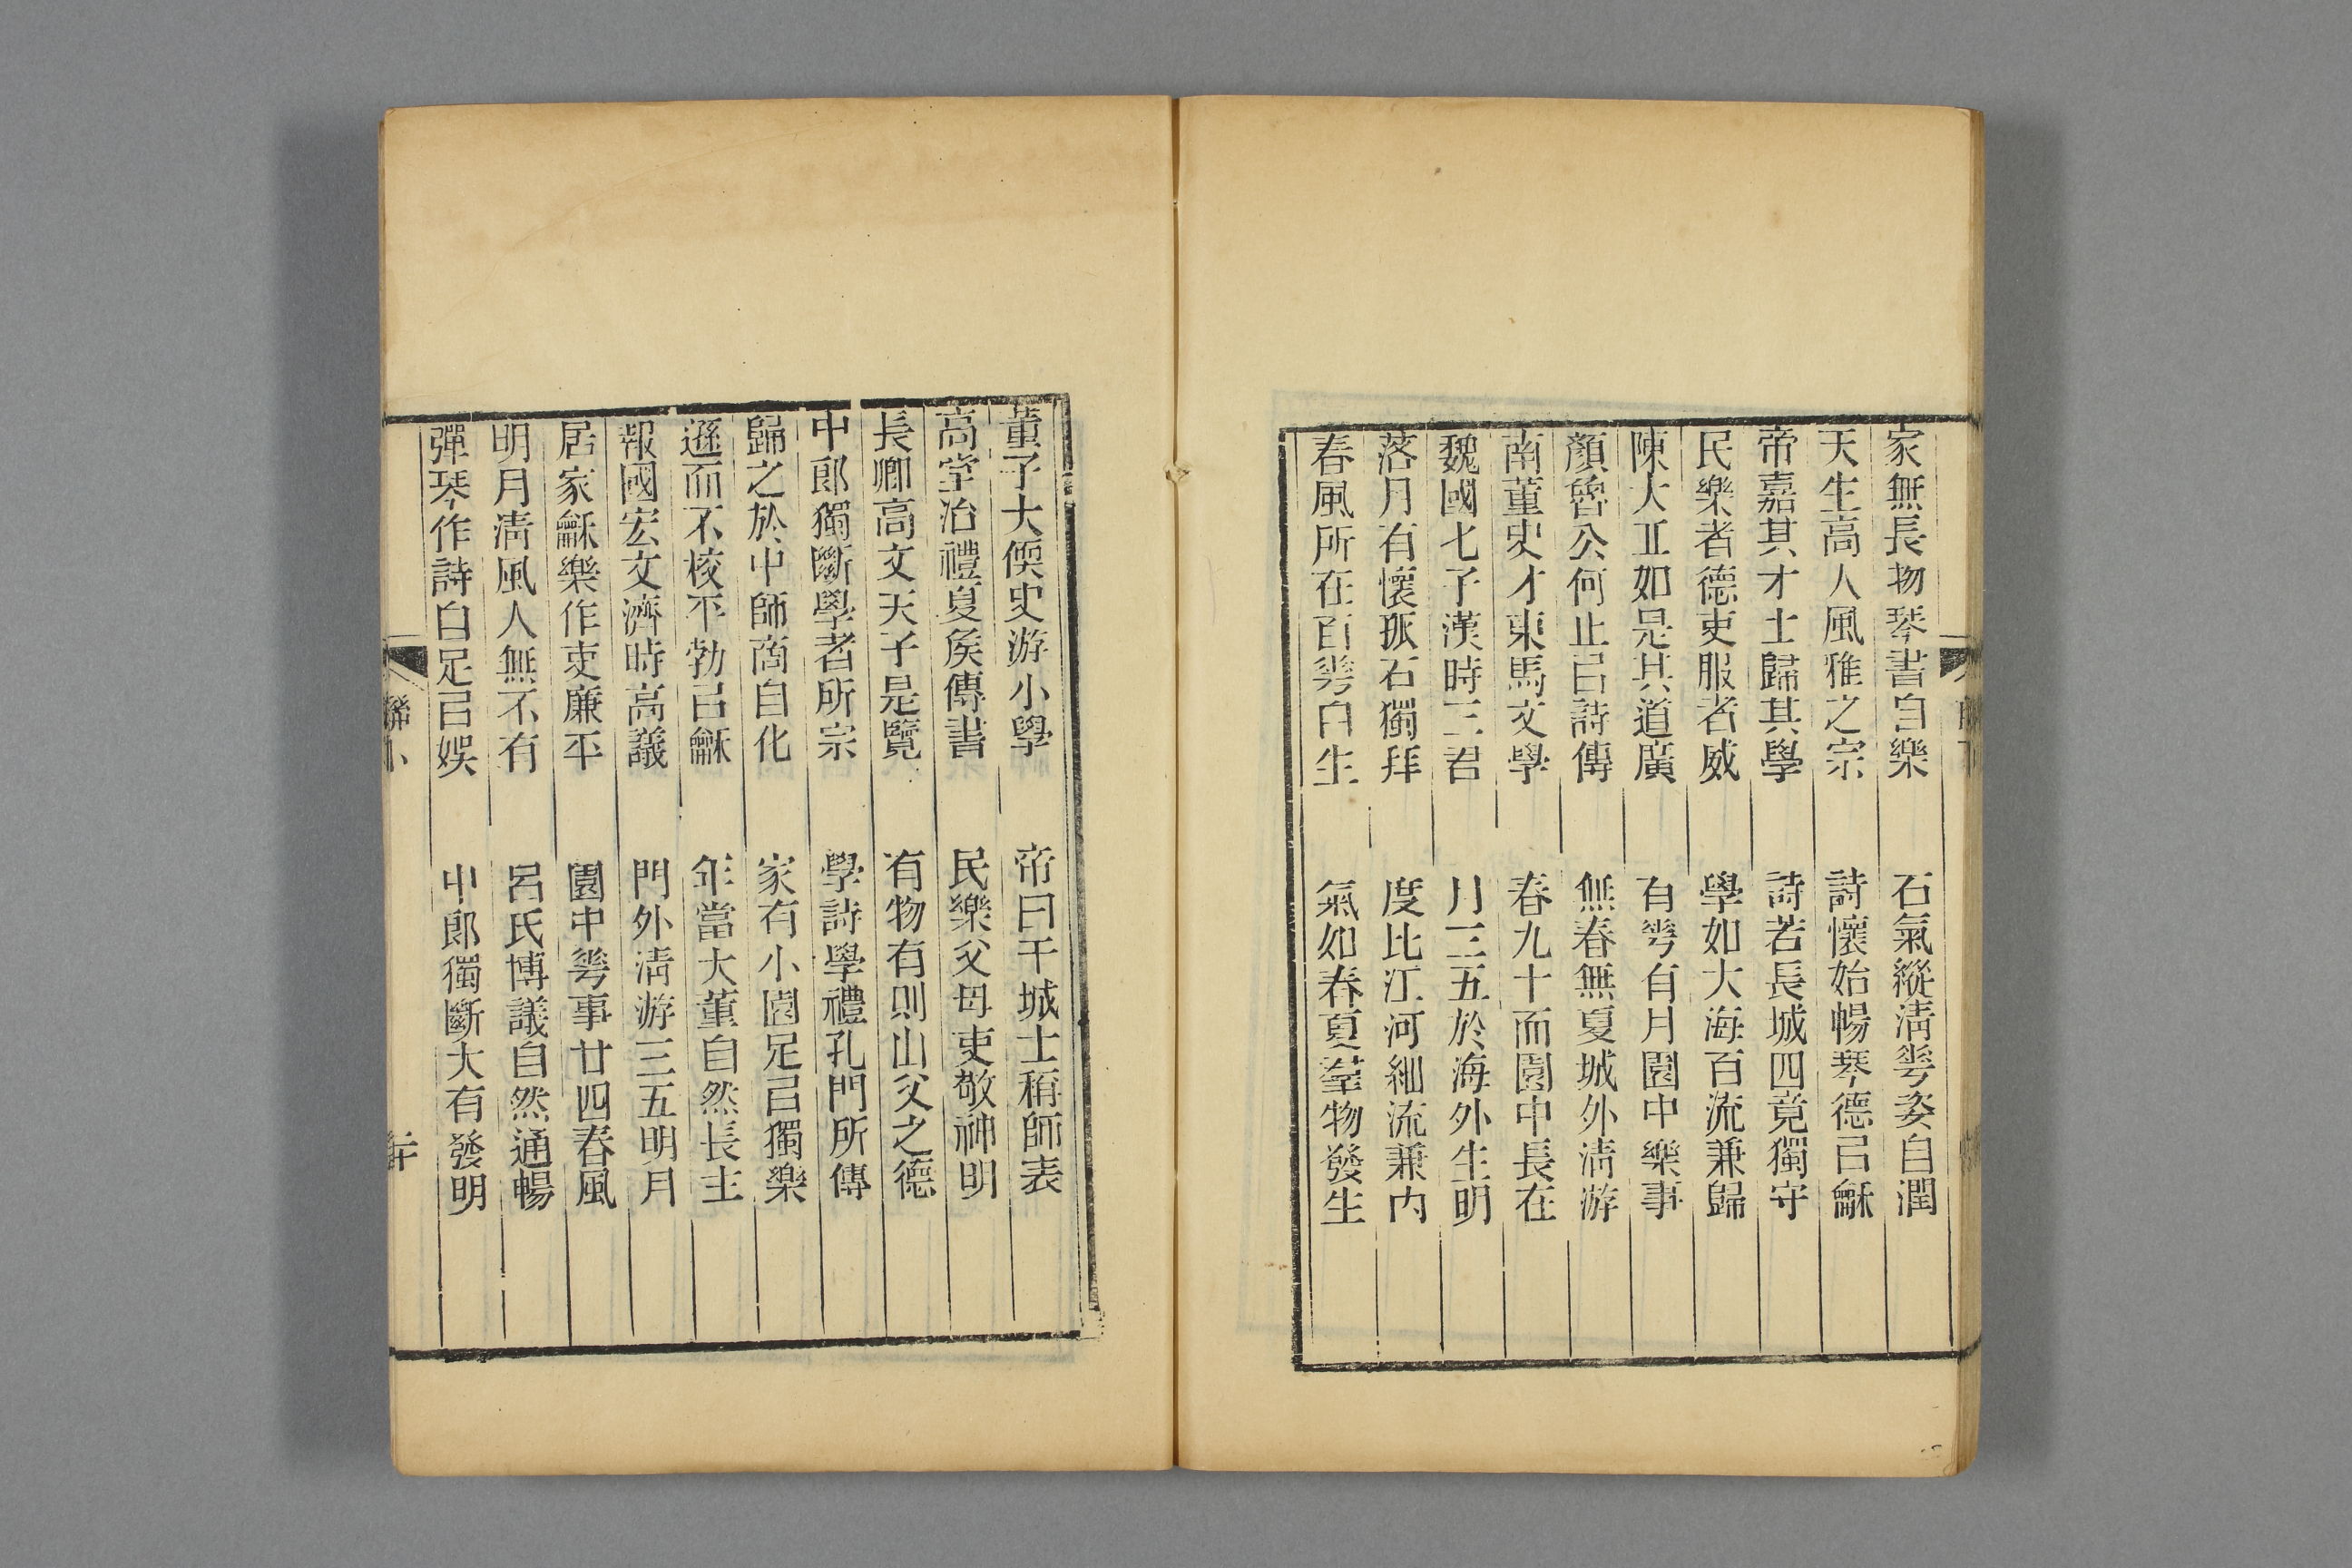 家無長物琴書自樂　石氣縱淸琴姿自潤
天生高人風雅之宗　詩懷始暢琴德㠯龢
帝嘉其才士歸其學　詩若長城四竟獨守
民樂者德吏服者威　學如大海百流兼歸
陳大丘如是其道廣　有㠭有月園中樂事
顏魯公何止㠯詩傳　無春無夏城外淸游
南董史才東馬文學　春九十而園中長在
魏國七子漢時三君　月三五於海外生明
落月有懷孤石獨拜　度比江河細流兼内
春風所在百㠭自生　氣如春夏羣物發生
董子大傂史游小學　帝曰干城士稱師表
高堂治禮夏矦傳書　民樂父母吏敬神明
長卿高文天子是覽　有物有則山父之德
中郎獨斷學者所宗　學詩學禮孔門所傳
歸之於中師商自化　家有小園足㠯獨樂
遜而不校平勃㠯龢　年當大董自然長主
報國宏文濟時高議　門外淸游三五明月
居家龢樂作吏廉平　園中㠭事廿四春風
明月淸風人無不有　呂氏博議自然通暢
彈琴作詩自足㠯娛　中郎獨斷大有發明